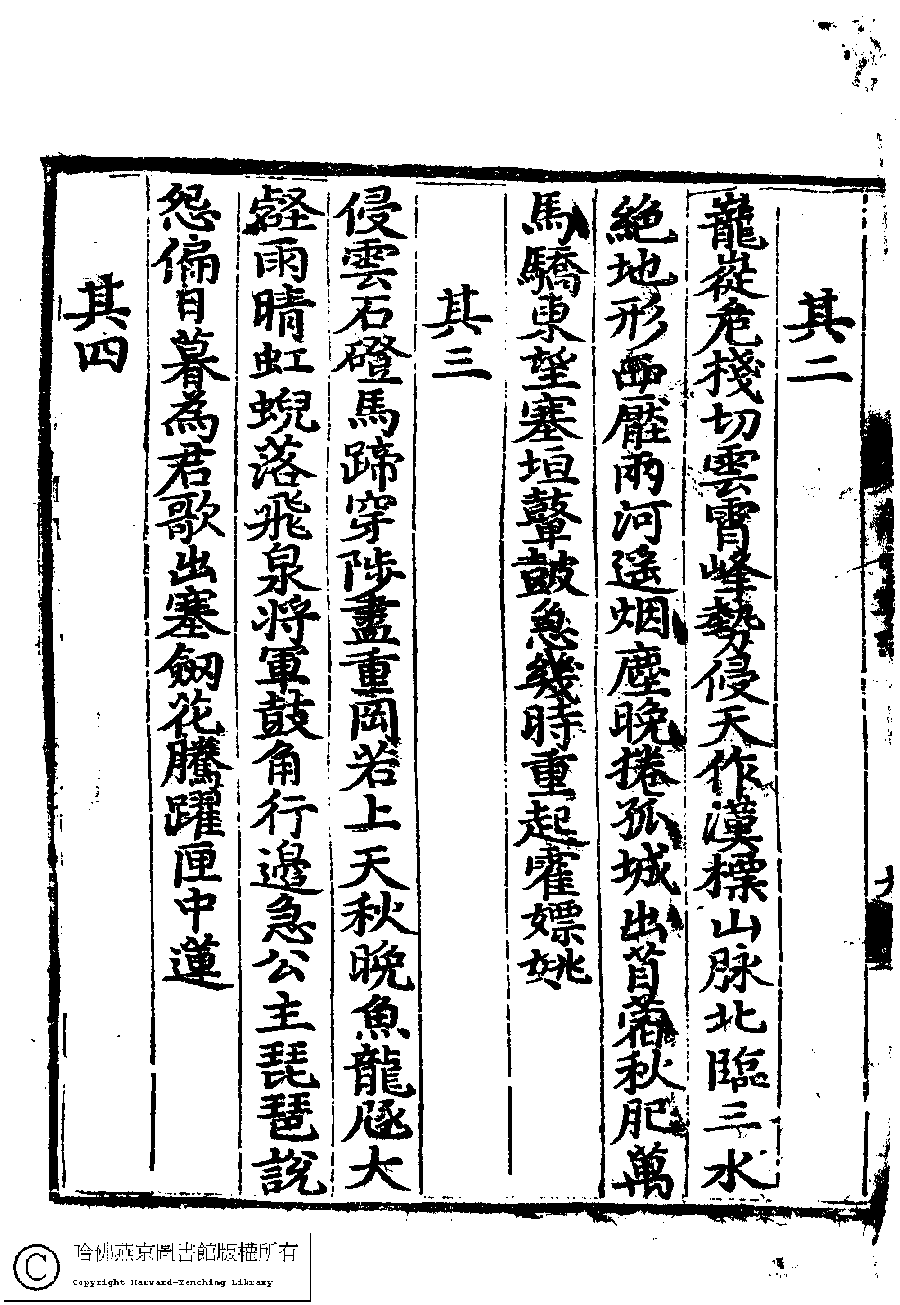 其二
巃嵸危棧切雲霄峰勢侵天作漢標山脉北臨三水
絶地形西壓兩河遙烟塵晚捲孤城出苜蓿秋肥萬
馬驕東望塞垣鼙皷急幾時重起霍嫖姚
其三
侵雲石磴馬蹄穿陟盡重岡若上天秋晚魚龍𠪨大
壑雨晴虹蜺落飛泉將軍鼓角行邊急公主琵琶說
怨偏日暮為君歌出塞劒花騰躍匣中蓮
其四
哈佛燕京圖書館版權所有
Copyright Harvard-Yenching Library